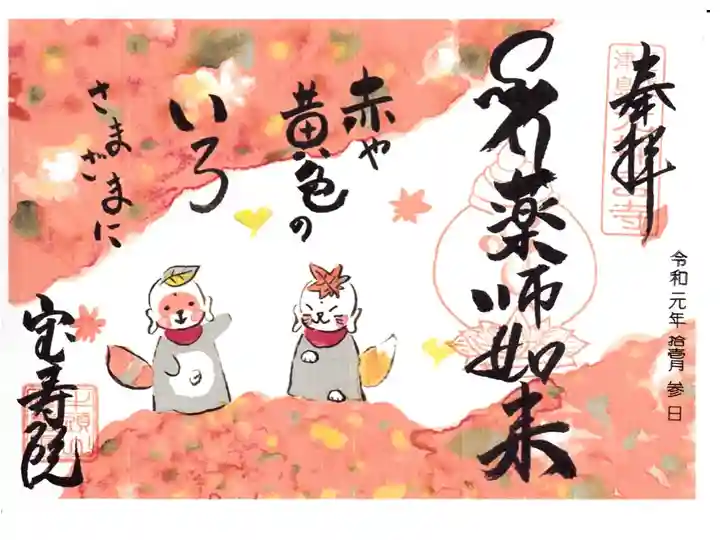 奉拝
令和元年 拾壱月 参日
薬師如来
赤や
黄色の
いろ
さまざまに
宝寿院